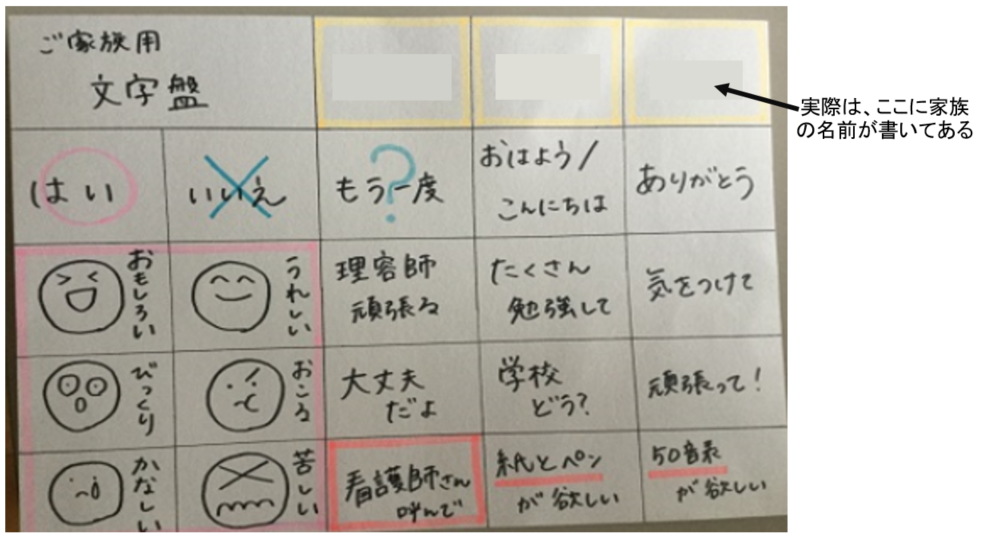 ご家族用
文字盤
実際は、ここに家族
の名前が書いてある
はい
いいえ
?
もう一度
おはよう/
こんにちは
ありがとう
おもしろい
うれしい
理容師
頑張る
たくさん
勉強して
気をつけて
びっくり
おこる
大丈夫
だよ
学校
どう?
頑張って!
かなしい
苦しい
看護師さん
呼んで
紙とペン
が欲しい
50音表
が欲しい